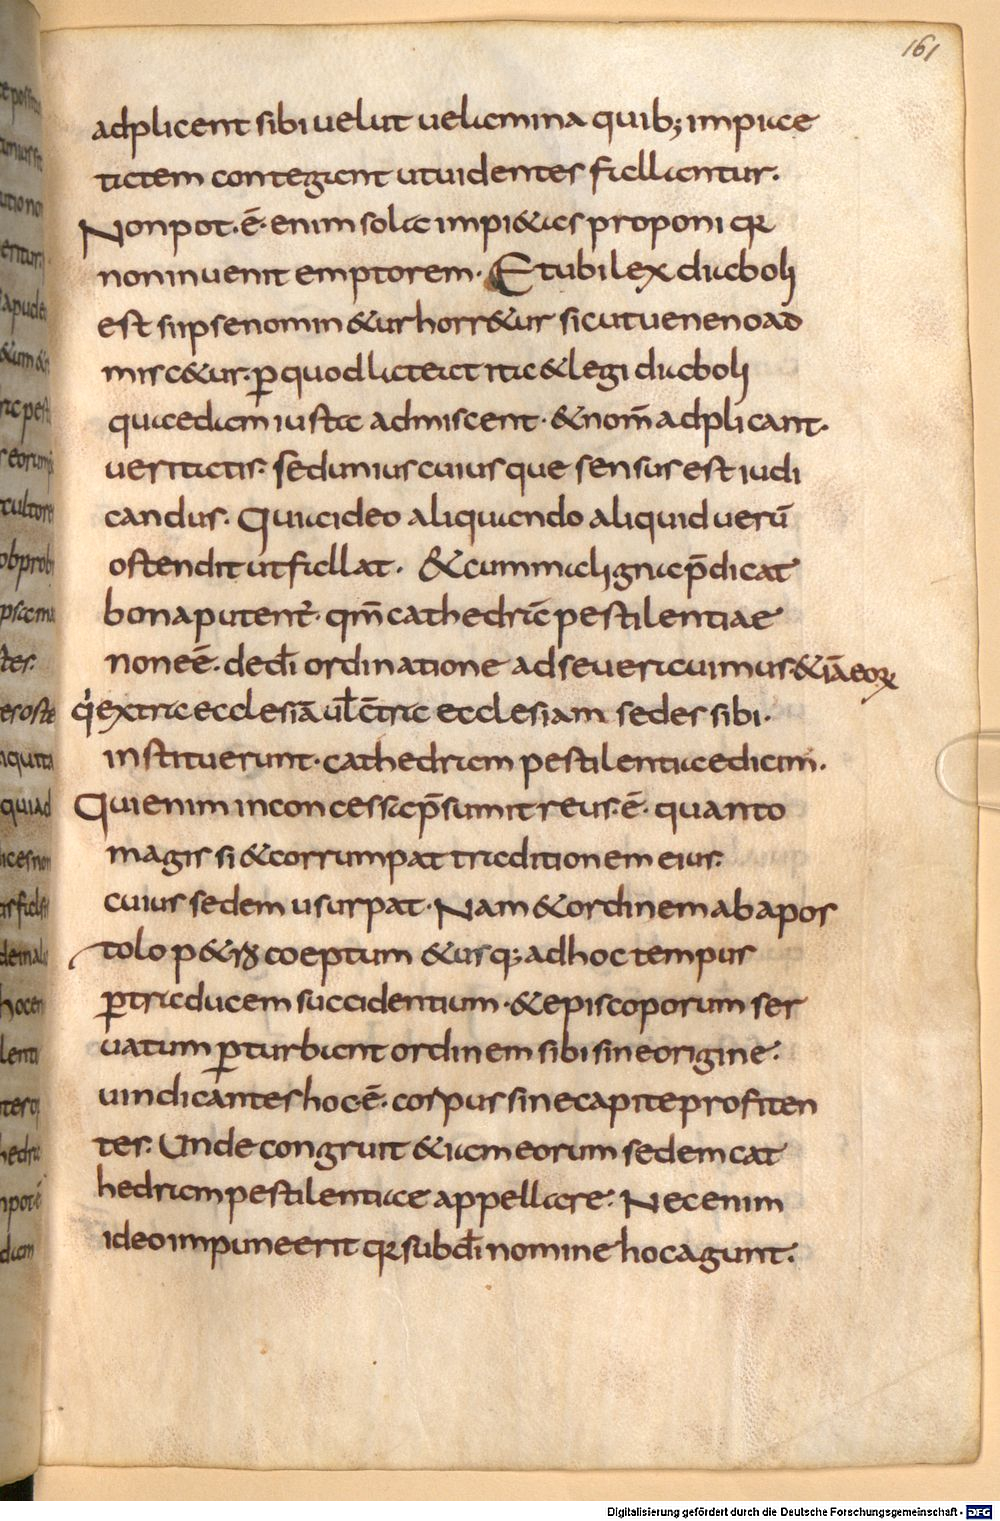 161
adplicent sibi uelut uelamina quib; impiae
tatem contegant ut uidentes fallantur.
Non pot. ē. enim sola impi&as proponi qꝛ
non inuenit emptorem. Et ubi lex diaboli
est si ipse nomin&ur horr&ur sicut ueneno ad
misc&ur. ꝑ quod lateat ita & legi diaboli
quaedam iusta admiscent. & nom̄ adplicant.
ueritatis. sed unius cuiusque sensus est iudi
candus. Quia ideo aliquando aliquid uerū
ostendit ut fallat. & cum maligna p̄dicat
bona putent᷑. qm̄ cathedra pestilentiae
non eē. de dī ordinatione adseueraui mus. & iā eoꝝ
qͥ extra ecclesiā ul̄ cētra ecclesiam sedes sibi.
instituerunt. cathedram pestilentiae dicam.
Qui enim inconcessa p̄sumit reus. ē. quanto
magis si & corrumpat traditionem eius.
cuius sedem usurpat. Nam & ordinem ab apos
tolo p&ro coeptum & usq; ad hoc tempus
ꝑ traducem succidentium. & episcoporum ser
uatum ꝑturbant ordinem sibi sine origine.
uindicantes hoc ē. corpus sine capite profiten
tes. Unde congruit &iam eorum sedem cat
hedram pestilentiae appellare. Nec enim
ideo impune erit qꝛ sub dī nomine hoc agunt.
Digitalisierung gefördert durch die Deutsche Forschungsgemeinschaft - DFG